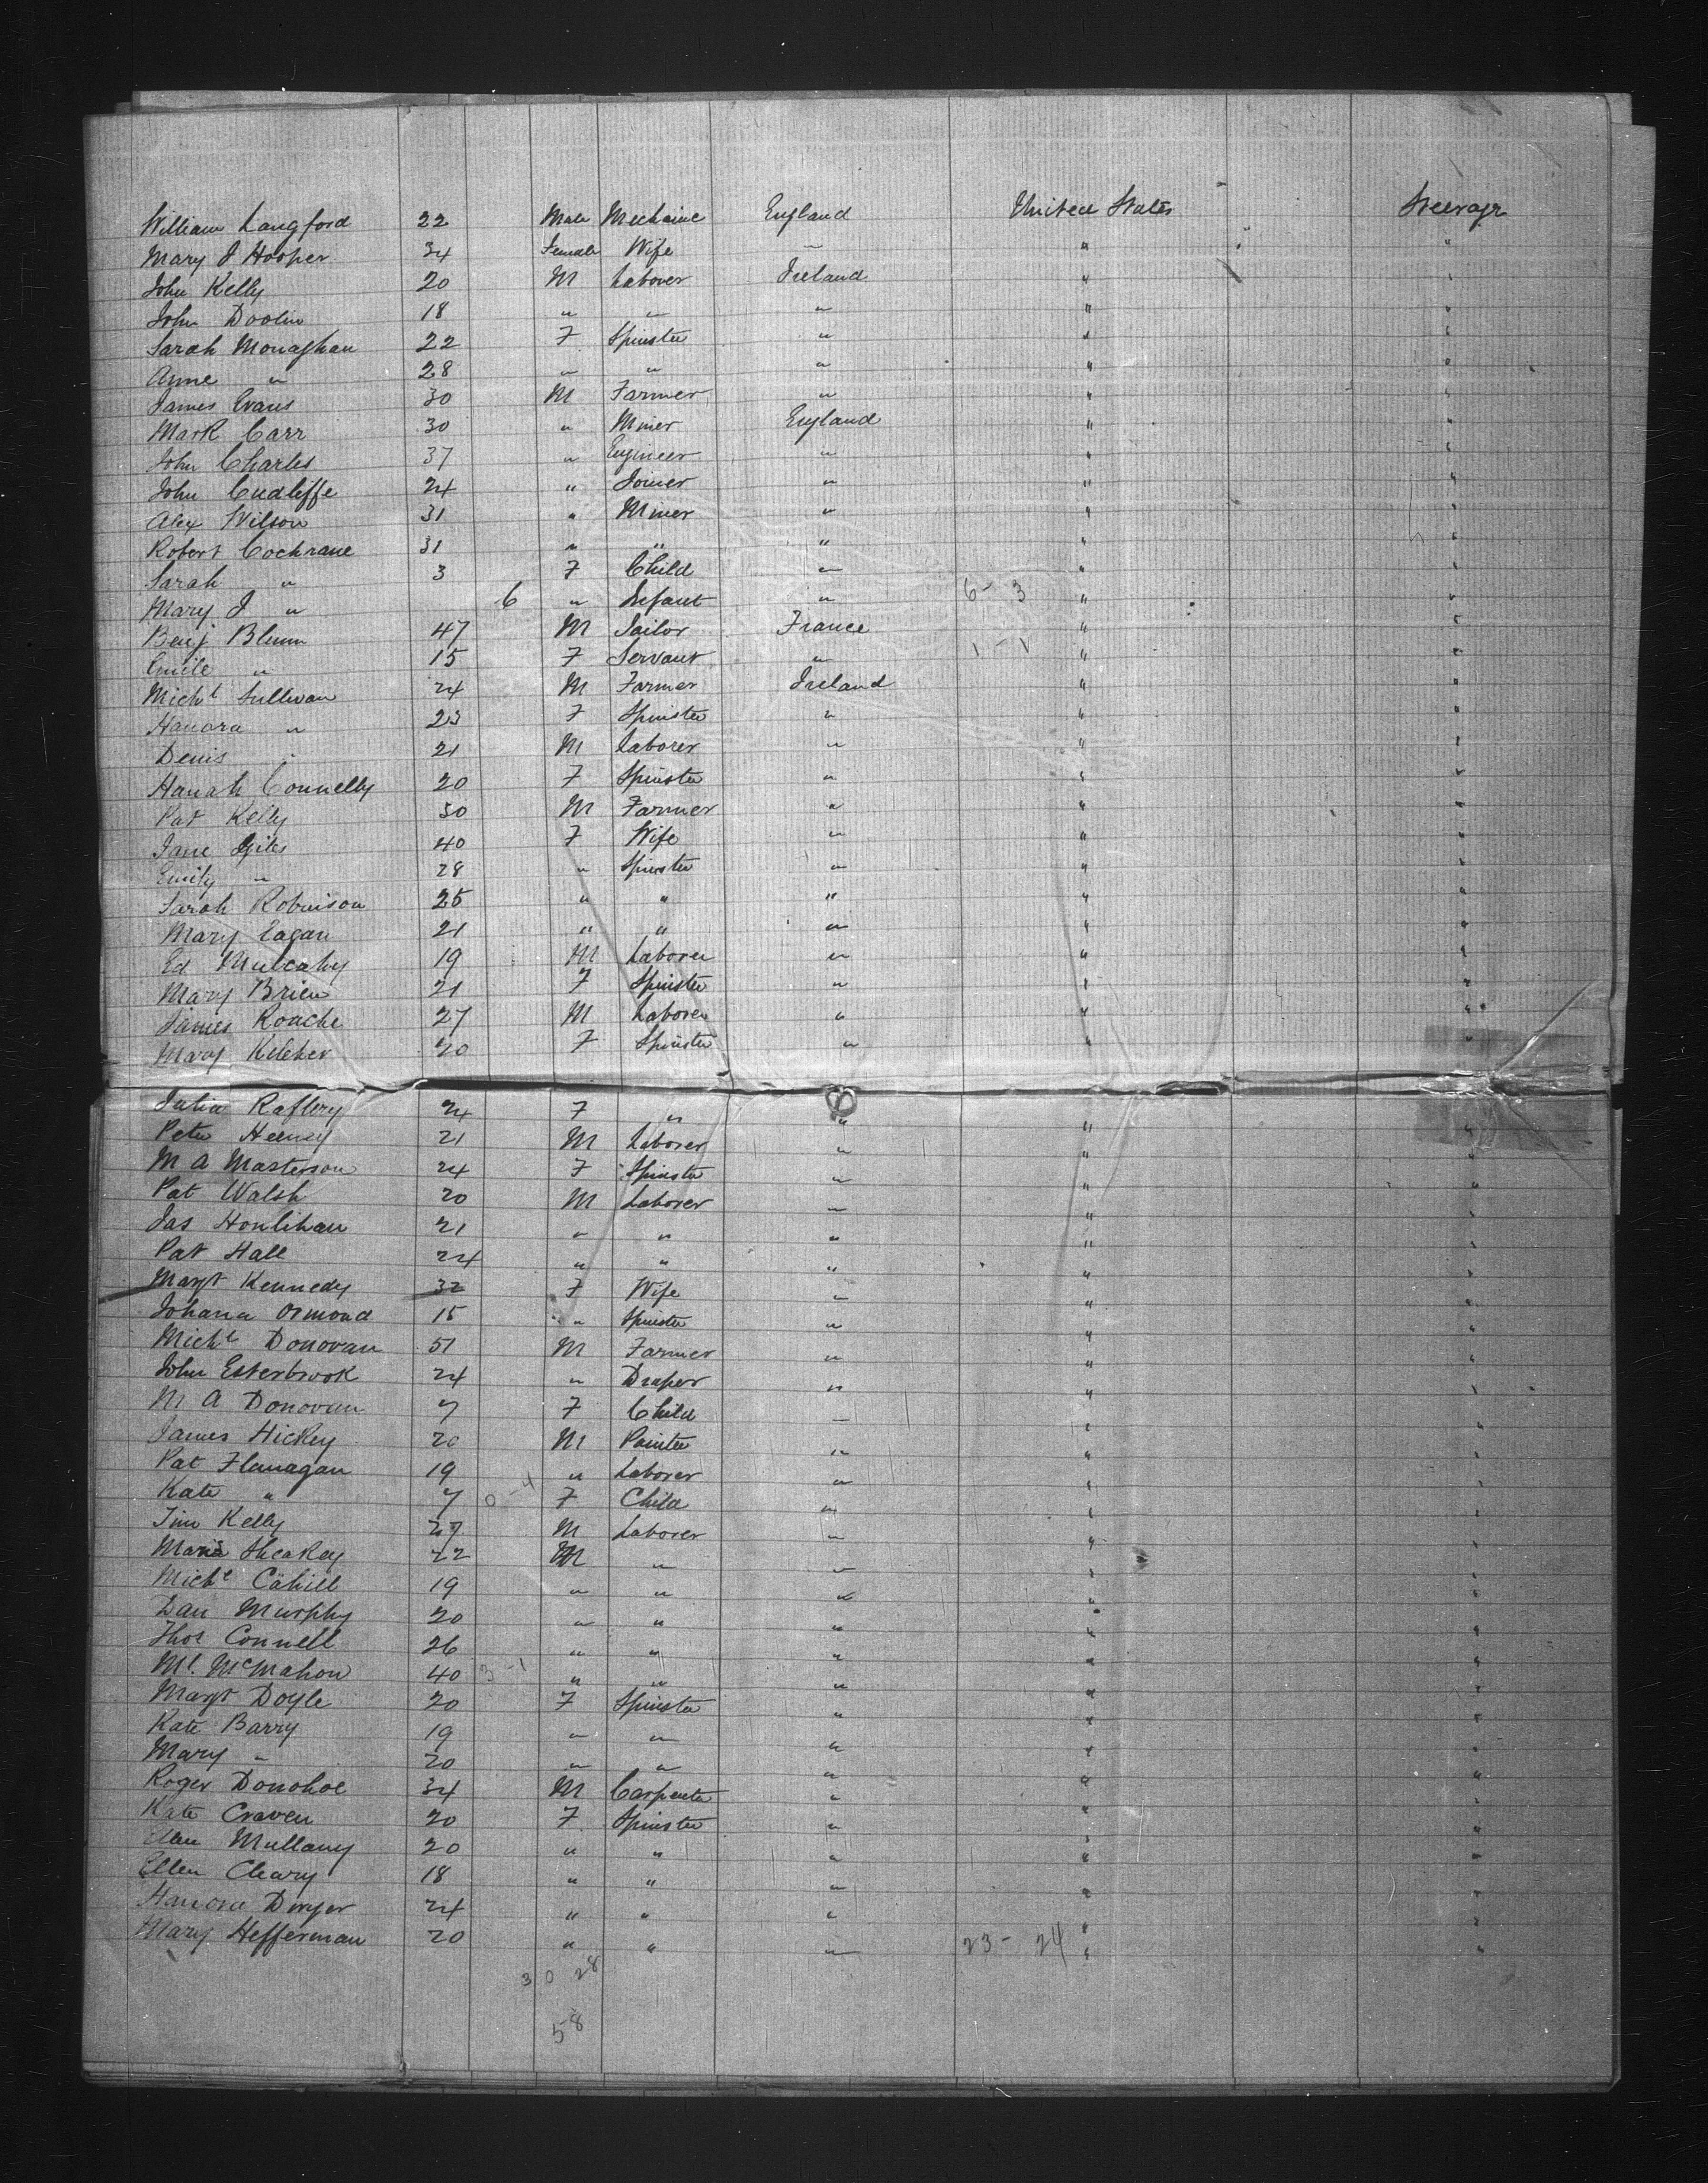 William Langford 22 Male Mechaine England United States Steerage
Mary J Hooper 34 Female Wife " " "
John Kelly 20 M Laborer Ireland " "
John Doolin 18 " " " " "
Sarah Monaghan 22 F Spinster " " "
Anne " 28 " " " " "
James Evans 30 M Farmer " " "
Mark Carr 30 " Miner England " "
John Charles 37 " Engineer " " "
John Cudliffe 24 " Joiner " " "
Alex Wilson 31 " Miner " " "
Robert Cochrane 31 " " " " "
Sarah " 3 F Child " " "
Mary J " 6 " Infant " 6 - 3 " "
Benj Blum 47 M Tailor France " "
Emile " 15 F Servant " 1 - 1 " "
Michl Sullivan 24 M Farmer Ireland " "
Hanora " 23 F Spinster " " "
Denis " 21 M Laborer " " "
Hanah Connelly 20 F Spinster " " "
Pat Kelly 30 M Farmer " " "
Jane Giles 40 F Wife " " "
Emily " 28 " Spinster " " "
Sarah Robinson 25 " " " " "
Mary Eagan 21 " " " " "
Ed Mulcahy 19 M Laborer " " "
Mary Brien 21 F Spinster " " "
James Roache 27 M Laborer " " "
Mary Kileher 20 F Spinster " " "
Julia Raftery 24 F " " " "
Peter Heeney 21 M Laborer " " "
M A Masterson 24 F Spinster " " "
Pat Walsh 20 M Laborer " " "
Jas Honlihan 21 " " " " "
Pat Hall 24 " " " " "
Margt Kennedy 32 F Wife " " "
Johana Ormond 15 " Spinster " " "
Michl Donovan 51 M Farmer " " "
John Esterbrook 24 " Draper " " "
M A Donovan 7 F Child " " "
James Hickey 20 M Painter " " "
Pat Flanagan 19 " Laborer " " "
Kate " 7 0 - 4 F Child " " "
Tim Kelly 27 M Laborer " " "
Maria Sheakey 22 M " " " "
Michl Cahill 19 " " " " "
Dan Murphy 20 " " " " "
Thos Connell 26 " " " " "
Ml. McMahon 40 3 - 1 " " " " "
Margt Doyle 20 F Spinster " " "
Kate Barry 19 " " " " "
Mary " 20 " " " " "
Roger Donohoe 34 M Carpenter " " "
Kate Craven 20 F Spinster " " "
Ellen Mullany 20 " " " " "
Ellen Cleary 18 " " " " "
Hanora Dwyer 24 " " " " "
Mary Hefferman 20 " " " 23 - 24 " "
30 28
58